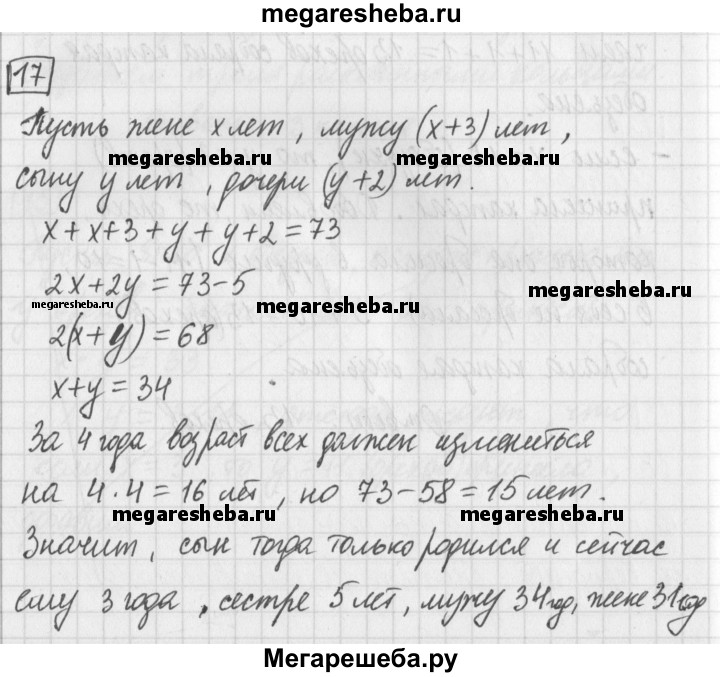 megaresheba.ru
17
Пусть жене x лет, мужу (x+3) лет,
megaresheba.ru megaresheba.ru
сыну y лет, дочери (y+2) лет.
x + x+3 + y + y+2 = 73
2x+2y = 73-5
megaresheba.ru megaresheba.ru megaresheba.ru
2(x+y) = 68
x+y = 34
За 4 года возраст всех должен измениться
на 4·4 = 16 лет, но 73-58 = 15 лет.
megaresheba.ru megaresheba.ru
Значит, сын тогда только родился и сейчас
ему 3 года, сестре 5 лет, мужу 34 год, жене 31 год
Мегарешеба.ру